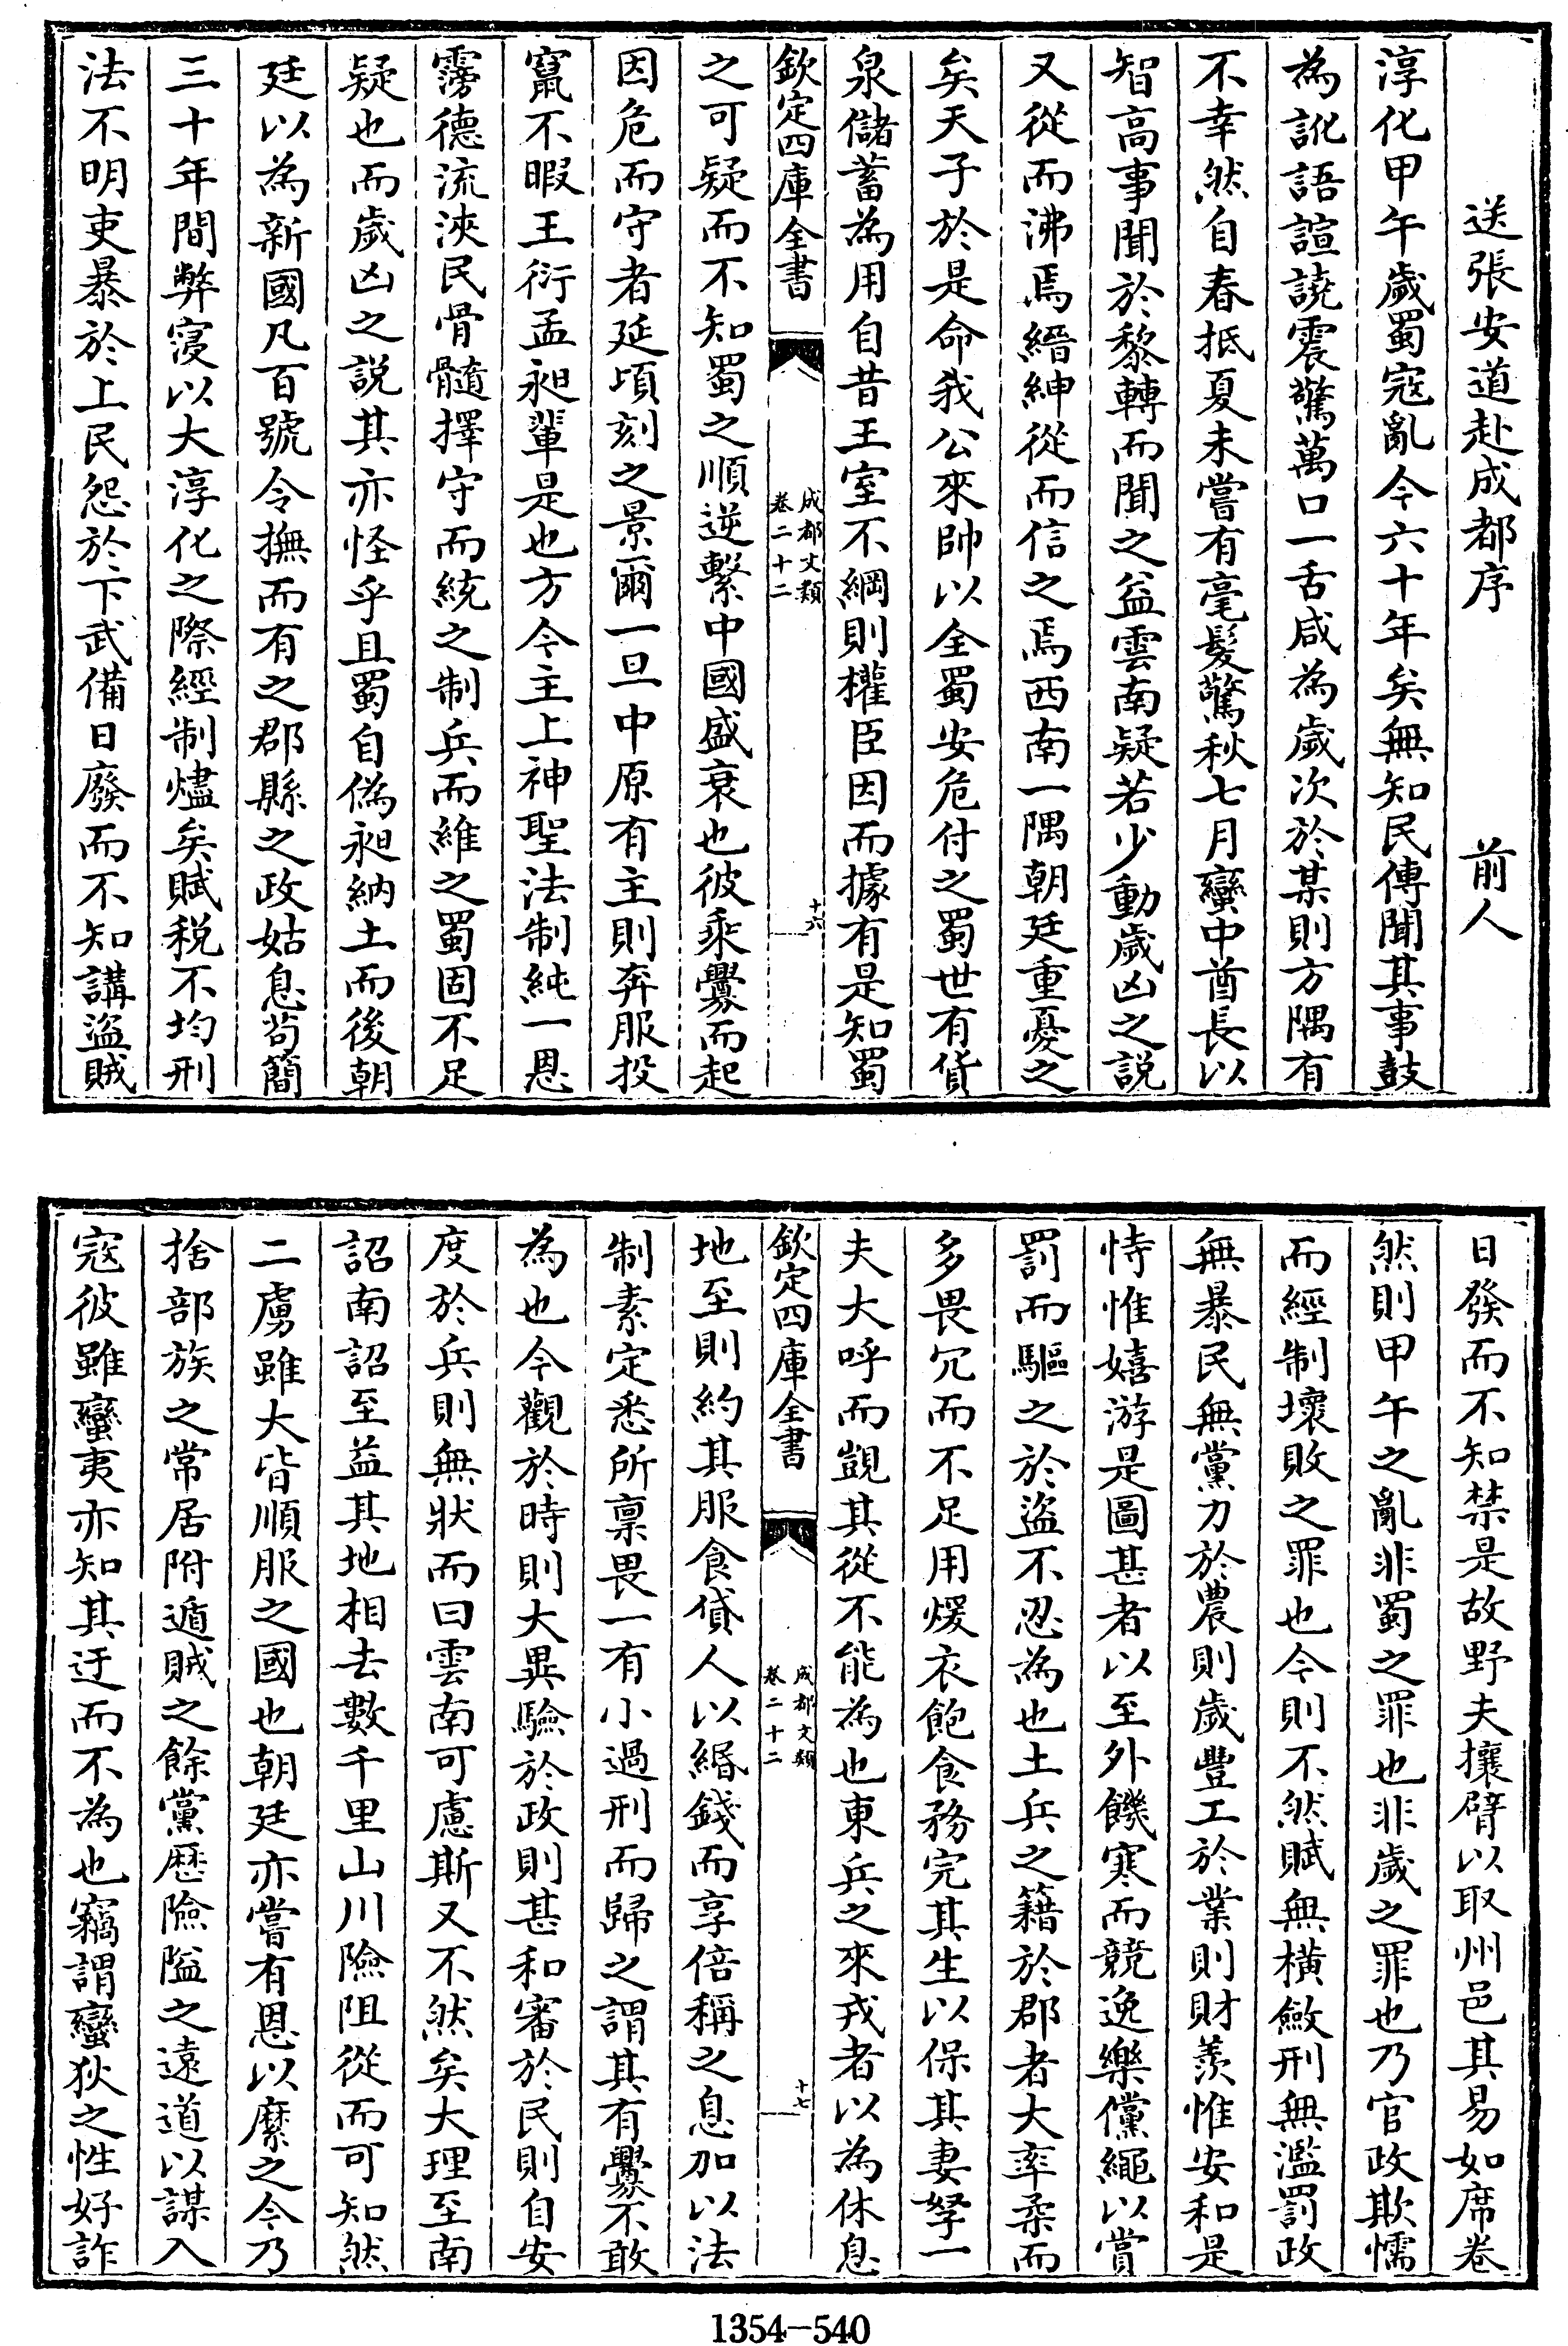 送張安道赴成都序　前人
淳化甲午歲蜀寇亂今六十年矣無知民傳聞其事鼓
為訛語諠譊震驚萬口一舌咸為歲次於某則方隅有
不幸然自春抵夏未嘗有毫髮驚秋七月蠻中酋長以
智高事聞於黎轉而聞之益雲南疑若少動歲凶之説
又從而沸焉縉紳從而信之焉西南一隅朝廷重憂之
矣天子於是命我公來帥以全蜀安危付之蜀世有貨
泉儲蓄為用自昔王室不綱則權臣因而據有是知蜀
欽定四庫全書
成都文類
卷二十二
十六
之可疑而不知蜀之順逆繫中國盛衰也彼乘釁而起
因危而守者延頃刻之景爾一旦中原有主則奔服投
竄不暇王衍孟昶輩是也方今主上神聖法制純一恩
霶德流浹民骨髓擇守而統之制兵而維之蜀固不足
疑也而歲凶之説其亦怪乎且蜀自偽昶納土而後朝
廷以為新國凡百號令撫而有之郡縣之政姑息苟簡
三十年間弊寖以大淳化之際經制燼矣賦税不均刑
法不明吏暴於上民怨於下武備日廢而不知講盜賊
日發而不知禁是故野夫攘臂以取州邑其易如席卷
然則甲午之亂非蜀之罪也非歲之罪也乃官政欺懦
而經制壞敗之罪也今則不然賦無橫斂刑無濫罰政
無暴民無黨力於農則歲豐工於業則財羨惟安和是
恃惟嬉游是圖甚者以至外饑寒而競逸樂儻繩以賞
罰而驅之於盜不忍為也土兵之籍於郡者大率柔而
多畏冗而不足用煖衣飽食務完其生以保其妻孥一
夫大呼而覬其從不能為也東兵之來戎者以為休息
欽定四庫全書
成都文類
卷二十二
十七
地至則約其服食貸人以緡錢而享倍稱之息加以法
制素定悉所稟畏一有小過刑而歸之謂其有釁不敢
為也今觀於時則大異驗於政則甚和審於民則自安
度於兵則無狀而曰雲南可慮斯又不然矣大理至南
詔南詔至益其地相去數千里山川險阻從而可知然
二虜雖大皆順服之國也朝廷亦嘗有恩以縻之今乃
捨部族之常居附遁賊之餘黨歴險隘之遠道以謀入
寇彼雖蠻夷亦知其迂而不為也竊謂蠻狄之性好詐
1354—540